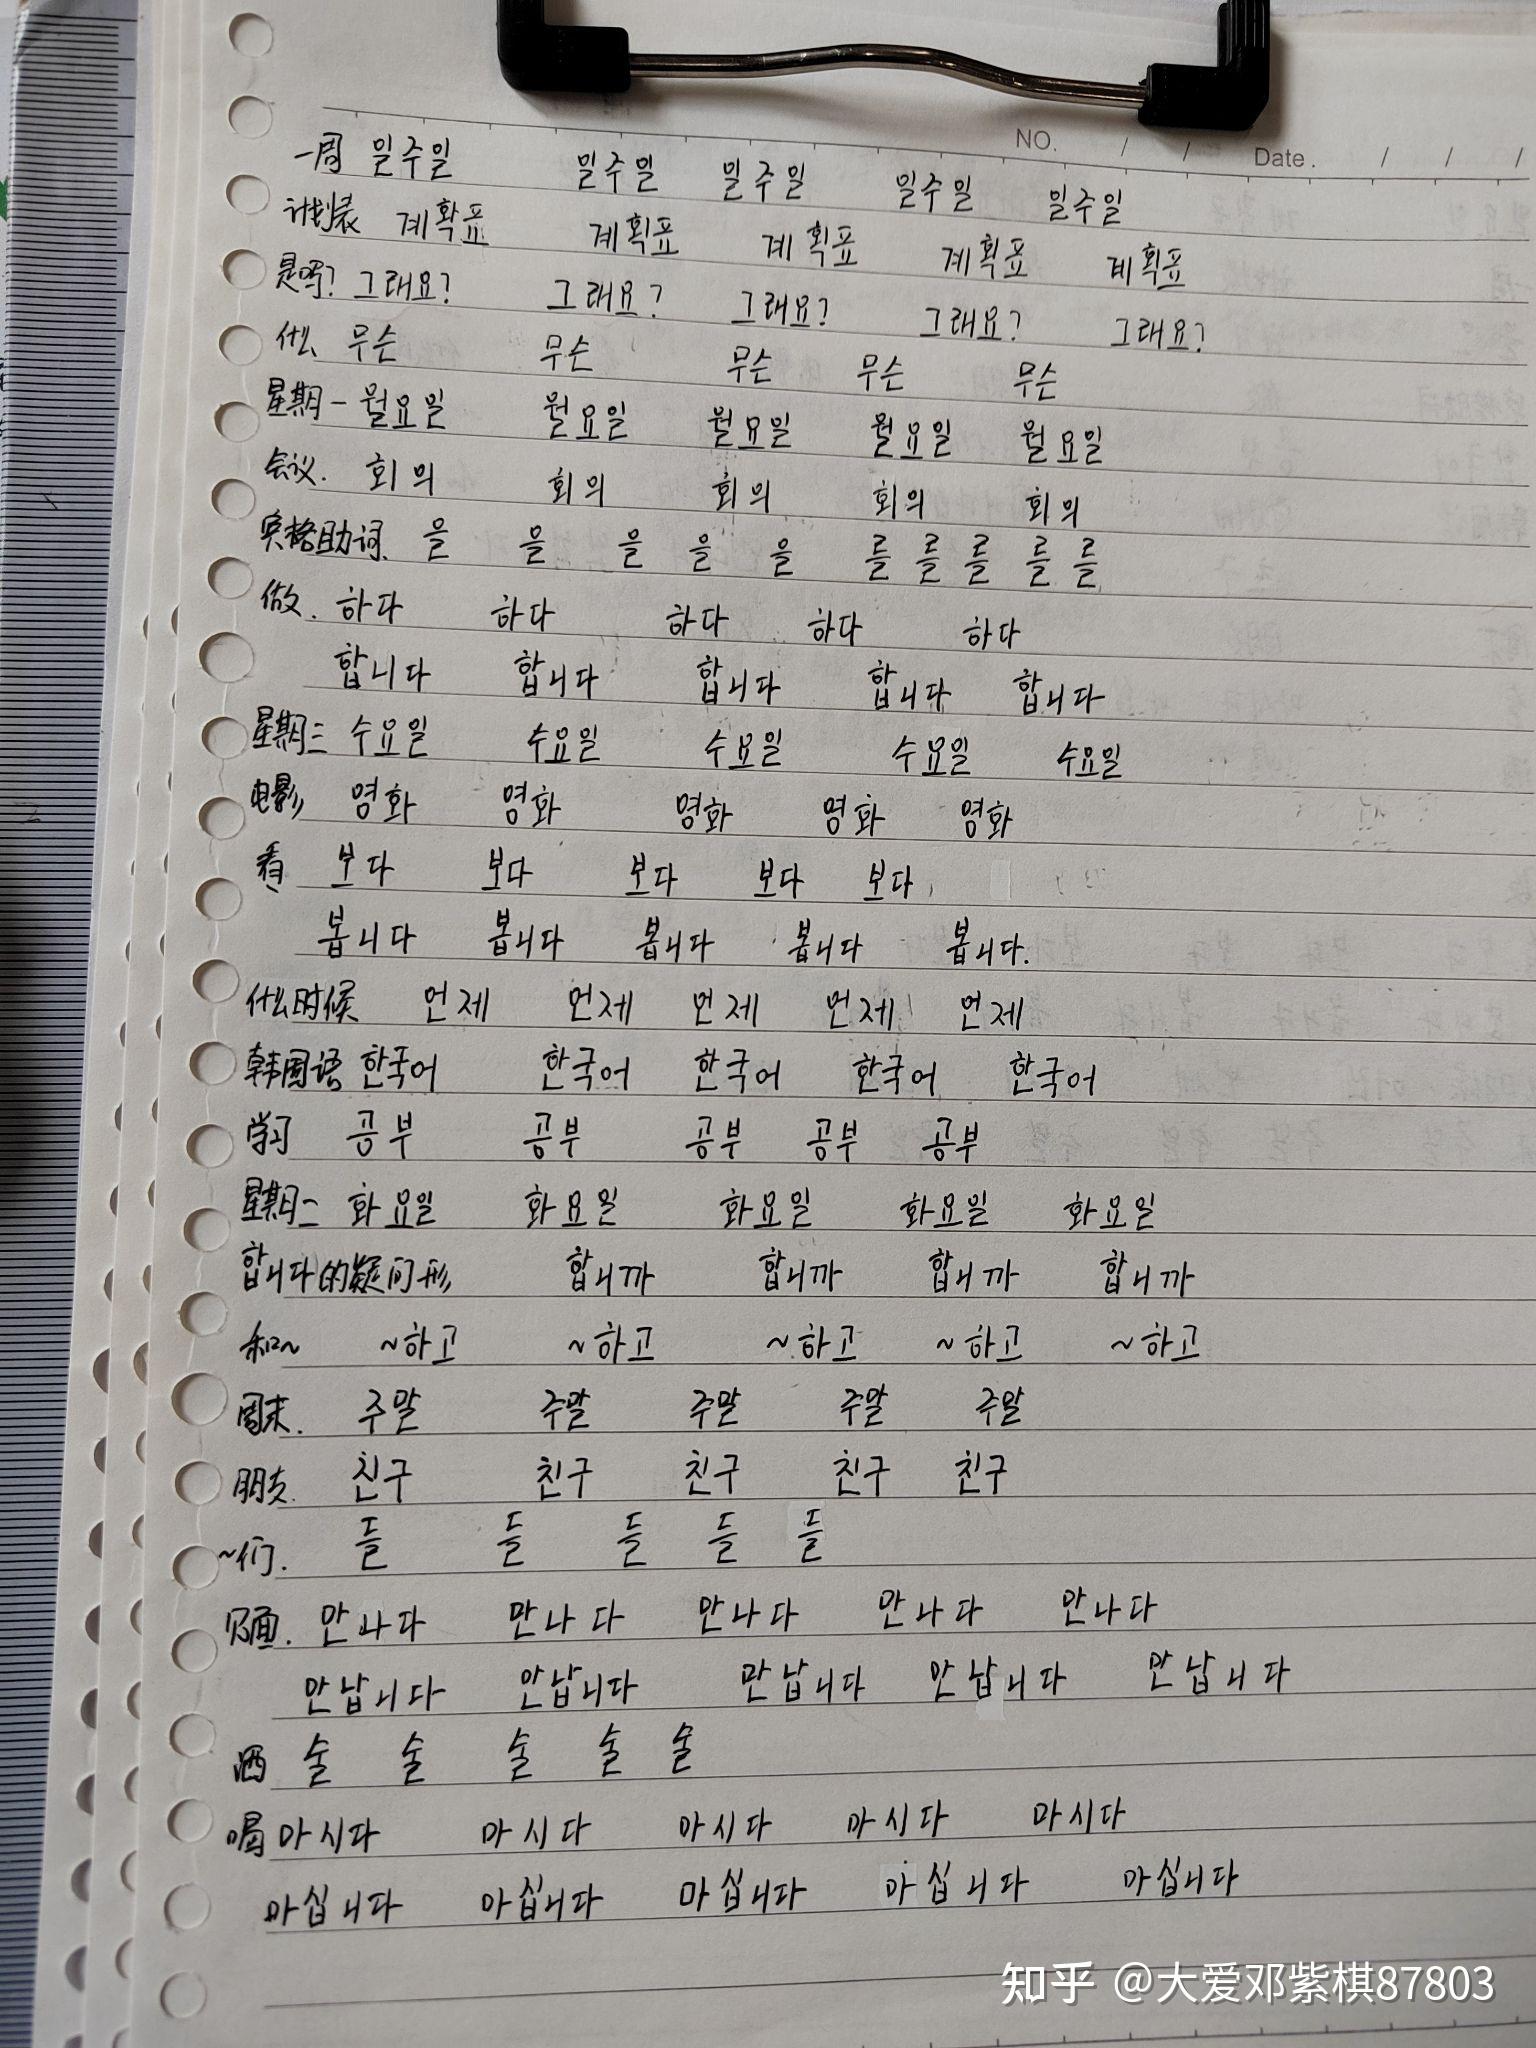 NO. / / Date. / / /
一周 일주일 일주일 일주일 일주일 일주일
计划表 계획표 계획표 계획표 계획표 계획표
是吗? 그래요? 그래요? 그래요? 그래요? 그래요?
什么 무슨 무슨 무슨 무슨 무슨
星期一 월요일 월요일 월요일 월요일 월요일
会议. 회의 회의 회의 회의 회의
宾格助词. 을 을 을 을 을 를 를 를 를 를
做. 하다 하다 하다 하다 하다
합니다 합니다 합니다 합니다 합니다
星期三 수요일 수요일 수요일 수요일 수요일
电影 영화 영화 영화 영화 영화
看 보다 보다 보다 보다 보다
봅니다 봅니다 봅니다 봅니다 봅니다.
什么时候 언제 언제 언제 언제 언제
韩国语 한국어 한국어 한국어 한국어 한국어
学习 공부 공부 공부 공부 공부
星期二 화요일 화요일 화요일 화요일 화요일
합니다的疑问形 합니까 합니까 합니까 합니까
和~ ~하고 ~하고 ~하고 ~하고 ~하고
周末. 주말 주말 주말 주말 주말
朋友. 친구 친구 친구 친구 친구
~们. 들 들 들 들 들
见面. 만나다 만나다 만나다 만나다 만나다
만납니다 만납니다 만납니다 만납니다 만납니다
酒 술 술 술 술 술
喝 마시다 마시다 마시다 마시다 마시다
마십니다 마십니다 마십니다 마십니다 마십니다
知乎 @大爱邓紫棋87803